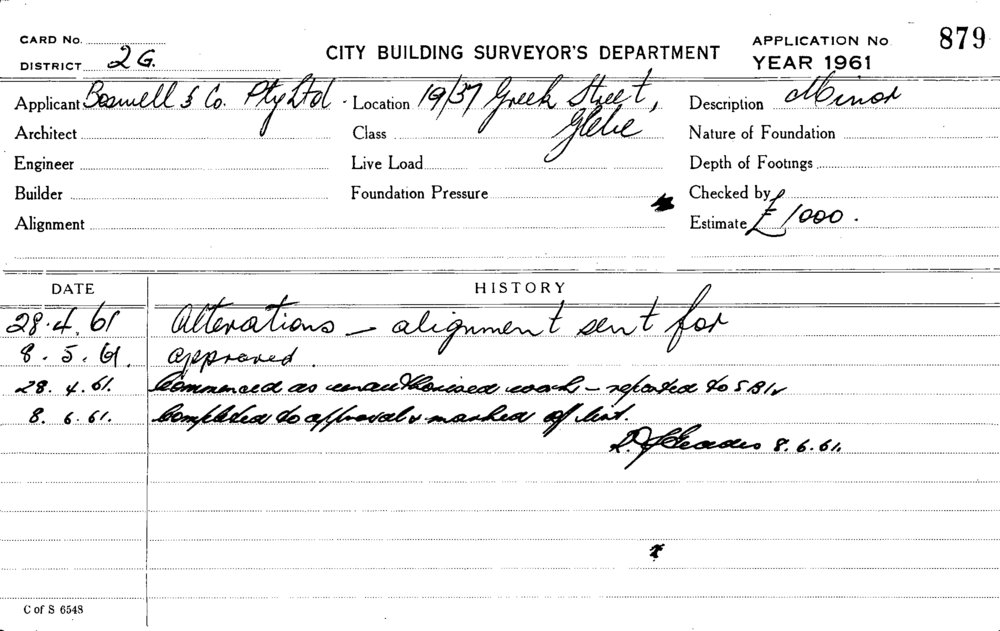 CARD No.
DISTRICT 2G.
CITY BUILDING SURVEYOR'S DEPARTMENT
APPLICATION No 879
YEAR 1961
Applicant Boswell & Co. Pty Ltd. Location 19/37 Greek Street, Glebe Description Minor
Architect Class Nature of Foundation
Engineer Live Load Depth of Footings
Builder Foundation Pressure Checked by
Alignment Estimate £1000.
DATE HISTORY
28.4.61 Alterations - alignment sent for
8.5.61. approved.
28.4.61. Commenced as unauthorised work - reported to SBI
8.6.61. Completed to approval & marked off list.
8.6.61.
C of S 6548